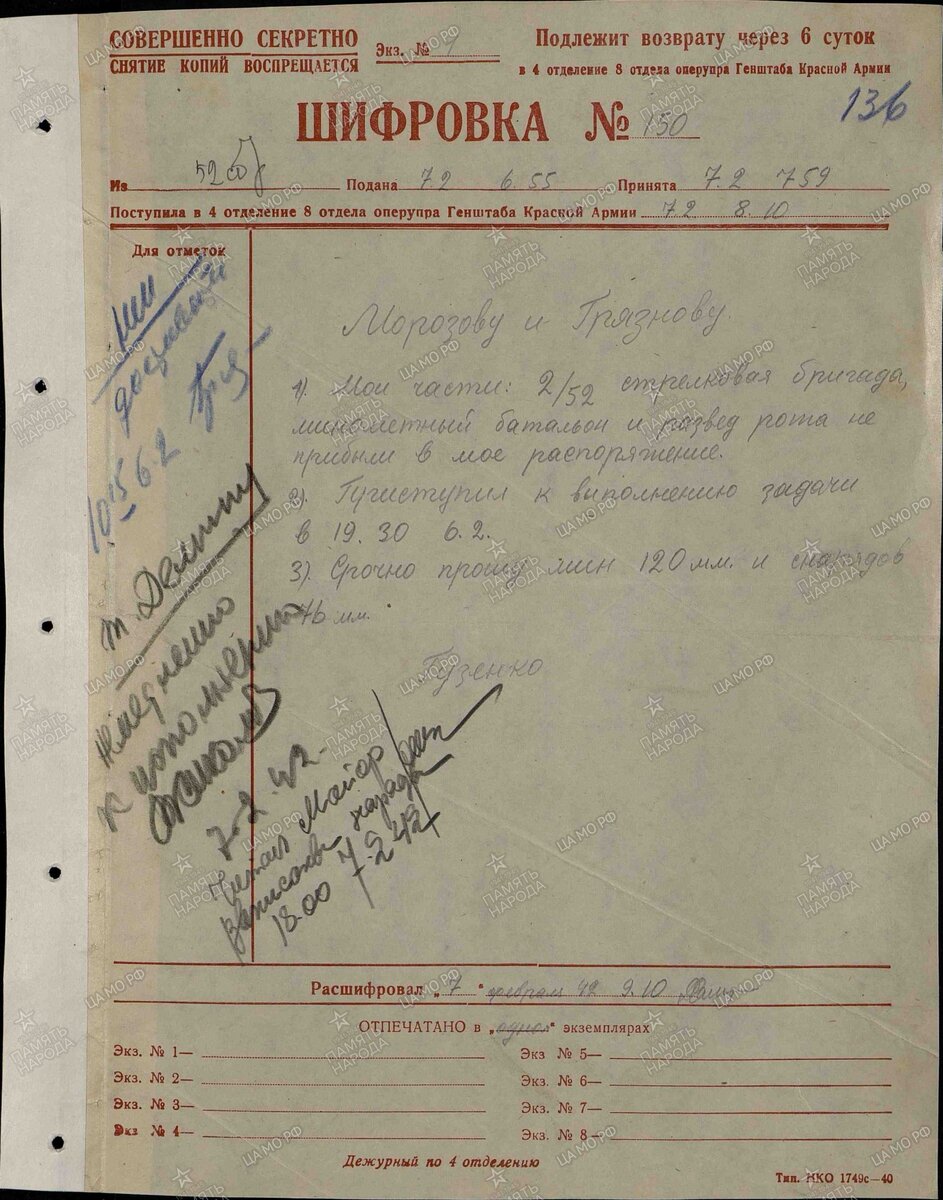 СОВЕРШЕННО СЕКРЕТНО
СНЯТИЕ КОПИЙ ВОСПРЕЩАЕТСЯ
Экз. № 1
Подлежит возврату через 6 суток
в 4 отделение 8 отдела оперупра Генштаба Красной Армии
136
ШИФРОВКА № 150
Из 52 Подана 7.2 6.55 Принята 7.2 759
Поступила в 4 отделение 8 отдела оперупра Генштаба Красной Армии 7 2 8.10
Для отметок
Морозову и Грязнову.
1) Мои части: 2/52 стрелковая бригада,
минометный батальон и развед рота не
прибыли в мое распоряжение.
2). Приступил к выполнению задачи
в 19.30 6.2.
3). Срочно прошу мин 120 мм. и снарядов
76 мм.
Гузенко
10 15 6.2
т.
Немедленно
к исполнению
7.2.42
Читал Майор
18.00 7.2.42
Расшифровал „7“ февраля 42 9.10
ОТПЕЧАТАНО в „одном“ экземплярах
Экз. № 1—
Экз. № 2—
Экз. № 3—
Экз № 4—
Экз № 5—
Экз. № 6—
Экз. № 7—
Экз. № 8—
Дежурный по 4 отделению
Тип. НКО 1749с—40
ПАМЯТЬ НАРОДА
ЦАМО.РФ